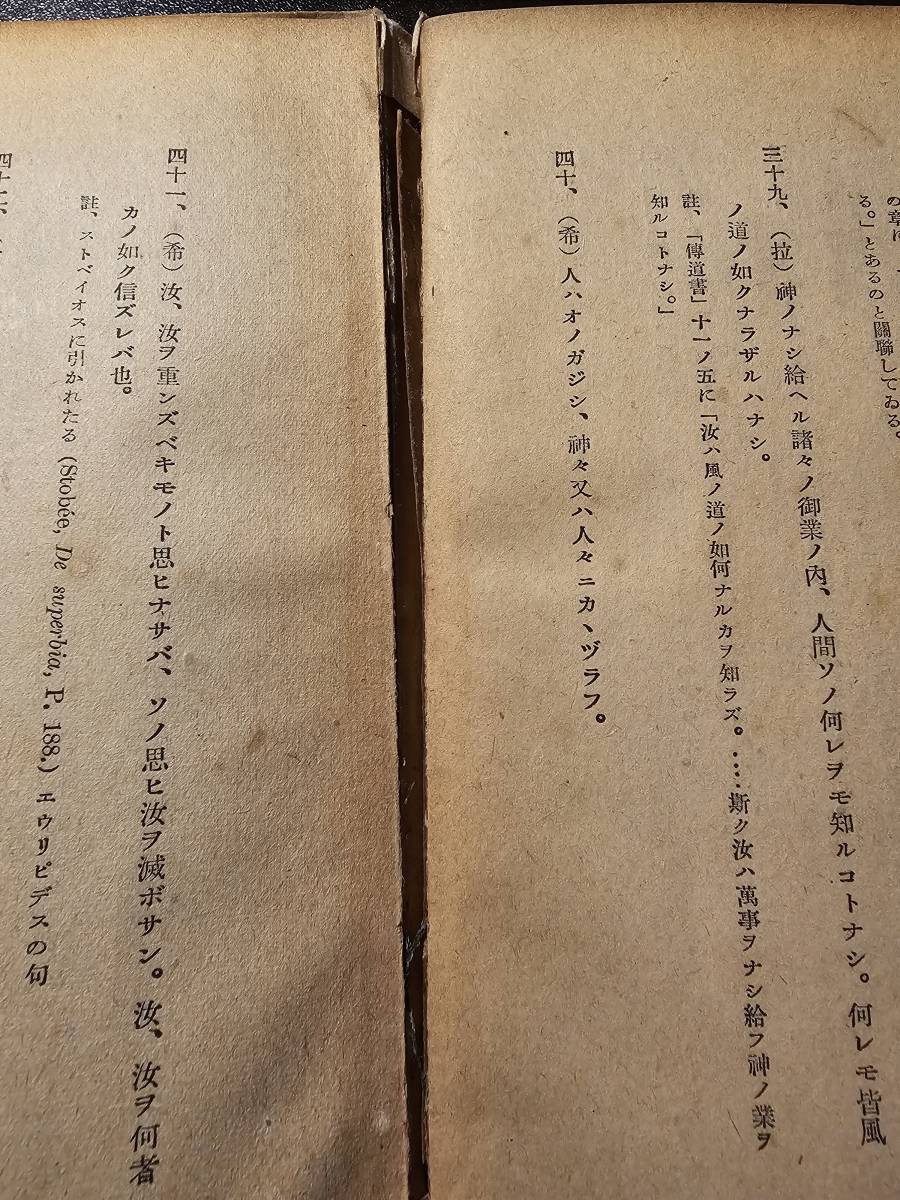 る。」とあるのと關聯してゐる。
三十九、(拉)神ノナシ給ヘル諸々ノ御業ノ內、人間ソノ何レヲモ知ルコトナシ。何レモ皆風
ノ道ノ如クナラザルハナシ。
註、「傳道書」十一ノ五に「汝ハ風ノ道ノ如何ナルカヲ知ラズ。‥‥斯ク汝ハ萬事ヲナシ給フ神ノ業ヲ
知ルコトナシ。」
四十、(希)人ハオノガジシ、神々又ハ人々ニカヽヅラフ。
四十一、(希)汝、汝ヲ重ンズベキモノト思ヒナサバ、ソノ思ヒ汝ヲ滅ボサン。汝、汝ヲ何者
カノ如ク信ズレバ也。
註、ストベイオスに引かれたる (Stobée, De superbia, P. 188.) エウリピデスの句
四十二、